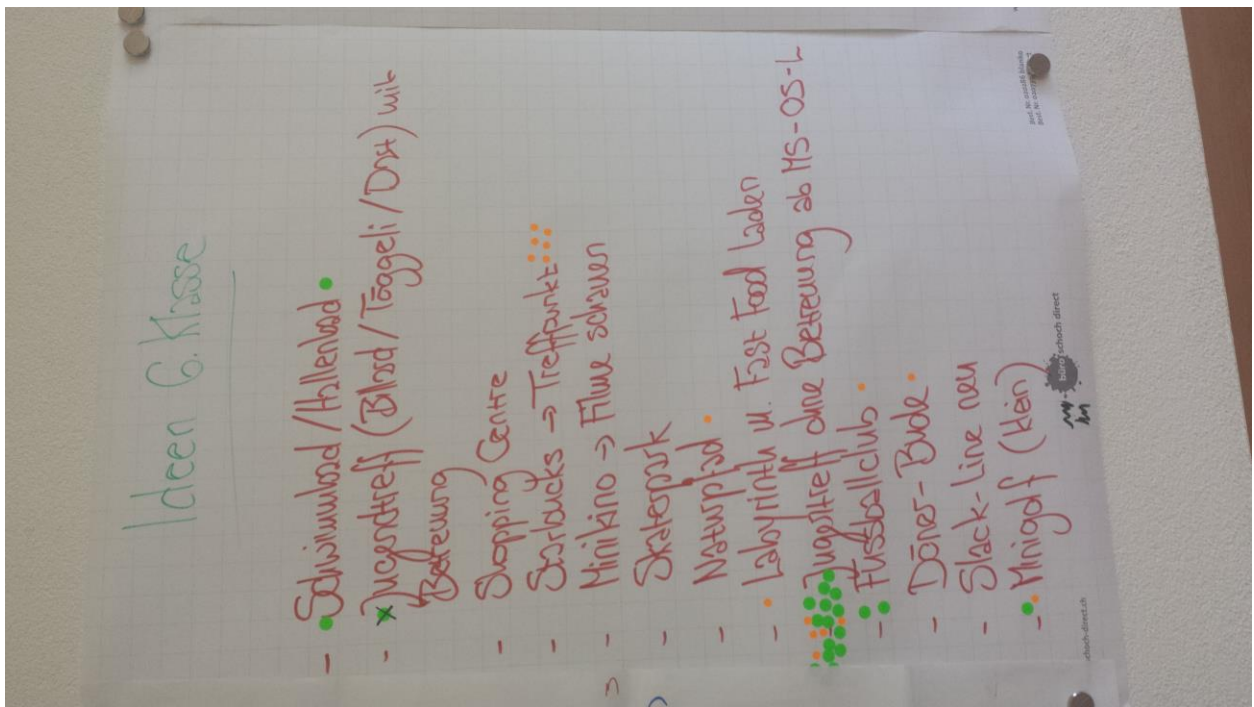 Ideen 6. Klasse
- Schwimmbad / Hallenbad
- Jugendtreff (Blasd / Töggeli / Dart) mit
Betreuung
- Shopping Centre
- Starbucks → Treffpunkt
- Minikino → Filme schauen
- Skaterpark
- Naturpfad
- Labyrinth m. Fast Food Laden
- Jugeltreff ohne Betreuung ab MS-OS-L
- Fussballclub
- Döner-Bude
- Slack-Line neu
- Minigolf (klein)
büro schoch direct
schoch-direct.ch